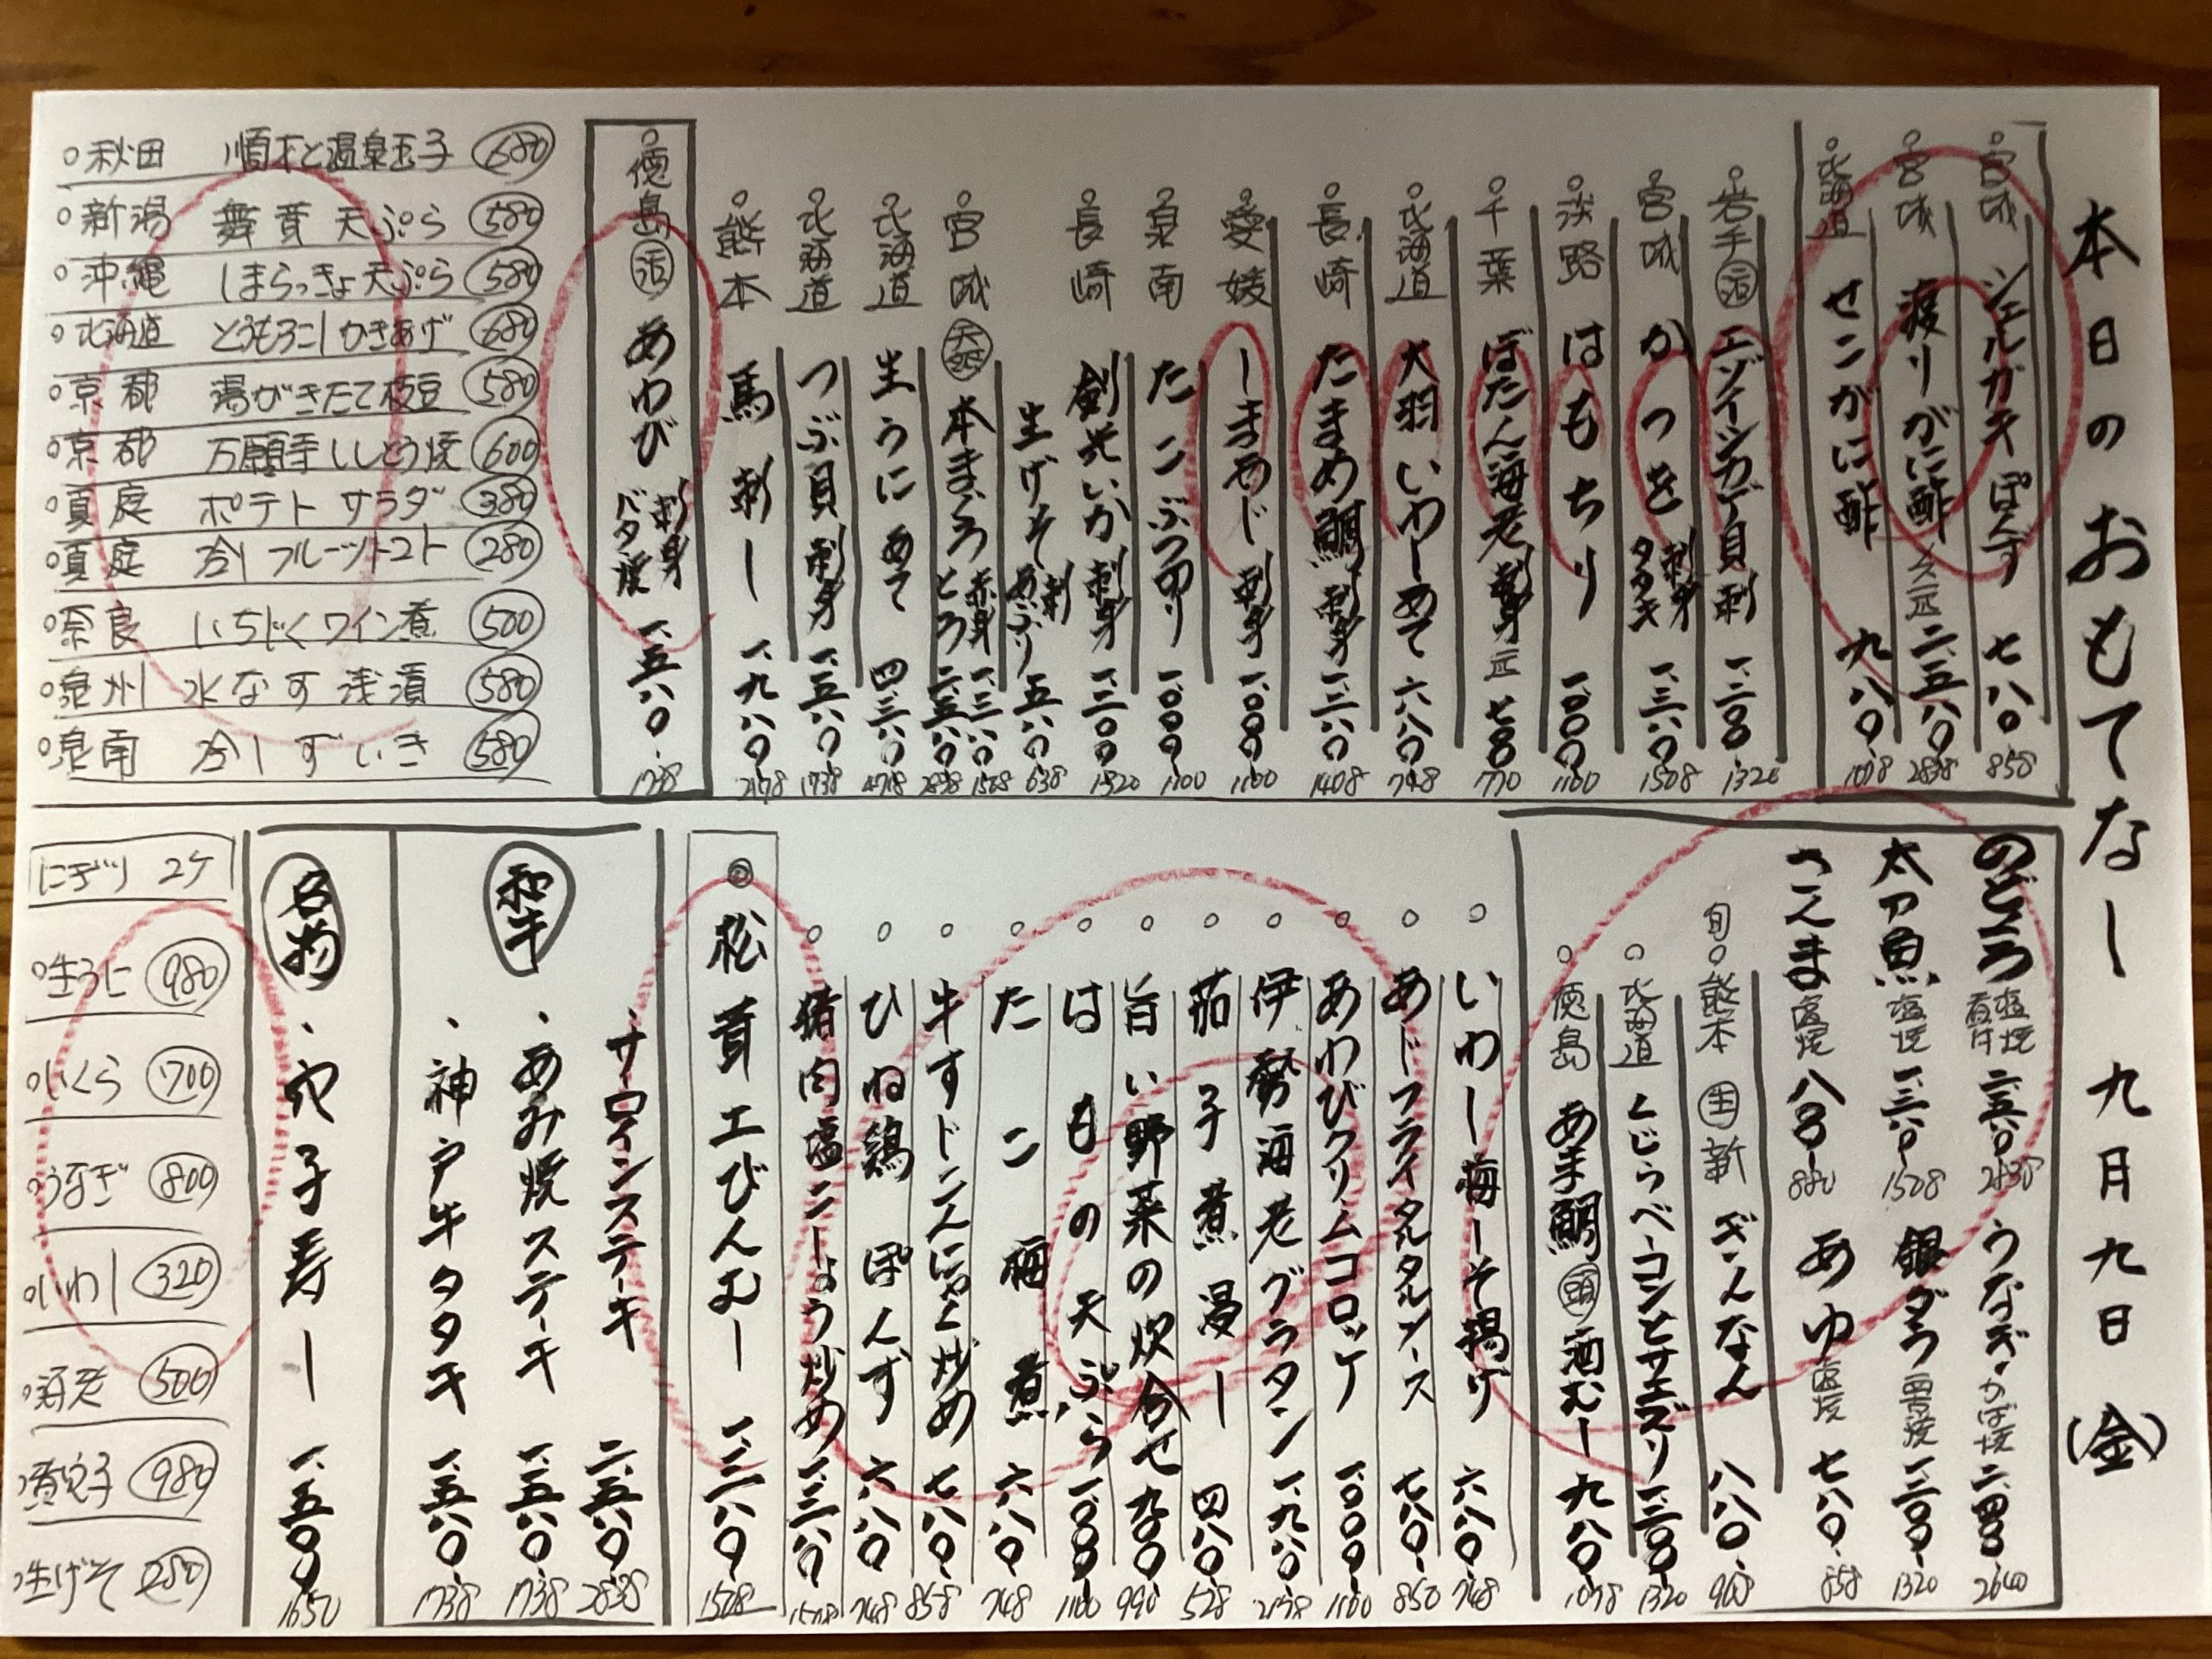 本日のおもてなし 九月九日(金)
宮城 シェルガキぽんず 七八〇. 858
宮城 渡りがに酢 二、五八〇 2838
北海道 せこがに酢 九八〇. 1078
岩手 活 エゾイシカゲ貝刺 一、二〇〇 1320
宮城 かつを 刺身 タタキ 一、三八〇 1508
淡路 はもちり 一、〇〇〇 1100
千葉 ぼたん海老刺身 一匹 七〇〇 770
北海道 大羽いわしあて 六八〇 748
長崎 たまめ鯛刺身 一、二八〇 1408
愛媛 しまあじ刺身 一、〇〇〇 1100
泉南 たこぶつ切り 一、〇〇〇 1100
長崎 剣先いか刺身 一、二〇〇 1320
生げそ 刺 あぶり 五八〇 638
宮城 天然 本まぐろ 赤身 一、三八〇 1508 とろ 二、五八〇 2838
北海道 生うにあて 四、三八〇 4718
北海道 つぶ貝刺身 一、五八〇 1738
熊本 馬刺し 一、九八〇 2178
徳島 活 あわび 刺身 バタ焼 一、五八〇. 1738
秋田 順才と温泉玉子 680
新潟 舞茸天ぷら 580
沖縄 しまらっきょ天ぷら 580
北海道 とうもろこしかきあげ 680
京都 湯がきたて枝豆 580
京都 万願寺ししとう焼 600
真庭 ポテトサラダ 380
真庭 冷しフルーツトマト 280
奈良 いちじくワイン煮 500
泉州 水なす浅漬 580
泉南 冷しずいき 580
のどぐろ 塩焼 煮付 二、五八〇 2838 うなぎ かば焼 二、四〇〇 2640
太刀魚 塩焼 一、三八〇 1508 銀ダラ 西京焼 一、二〇〇 1320
さんま 塩焼 八〇〇 880 あゆ 塩焼 七八〇. 858
旬 熊本 生 新ぎんなん 八八〇. 968
北海道 くじらベーコンとサエズリ 一、二〇〇 1320
徳島 あま鯛 酒むし 九八〇 1078
いわし梅しそ揚げ 六八〇 748
あじフライタルタルソース 七八〇 850
あわびクリームコロッケ 一、〇〇〇 1100
伊勢海老グラタン 一、九八〇 2178
茄子煮浸し 四八〇 528
旨い野菜の炊合せ 九〇〇 990
はもの天ぷら 一、〇〇〇 1100
たこ桜煮 六八〇 748
牛すじこんにゃく炒め 七八〇 858
ひね鶏ぽんず 六八〇 748
猪肉塩こしょう炒め 一、三八〇 1508
松茸土びんむし 一、三八〇 1508
和牛
サーロインステーキ 二、五八〇 2838
あみ焼ステーキ 一、五八〇 1738
神戸牛タタキ 一、五八〇 1738
名物
穴子寿し 一、五〇〇 1650
にぎり 2ケ
生うに 980
いくら 700
うなぎ 800
いわし 320
海老 500
煮穴子 980
生げそ 280